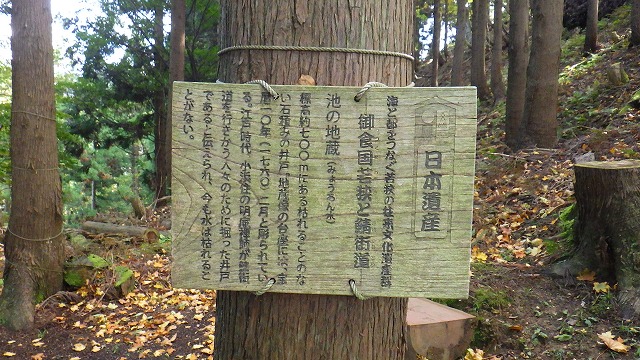 日本遺産
海と都をつなぐ若狭の往来文化遺産群
御食国若狭と鯖街道
池の地蔵(みょうちん水)
標高約七〇〇mにある枯れることのな
い石組みの井戸。地蔵様の台座に宝
暦一〇年(一七六〇)二月と彫られてい
る。江戸時代、小浜住の明珍
道を行きかう人々のために掘った井戸
であると伝えられ、今も水は枯れるこ
とがない。